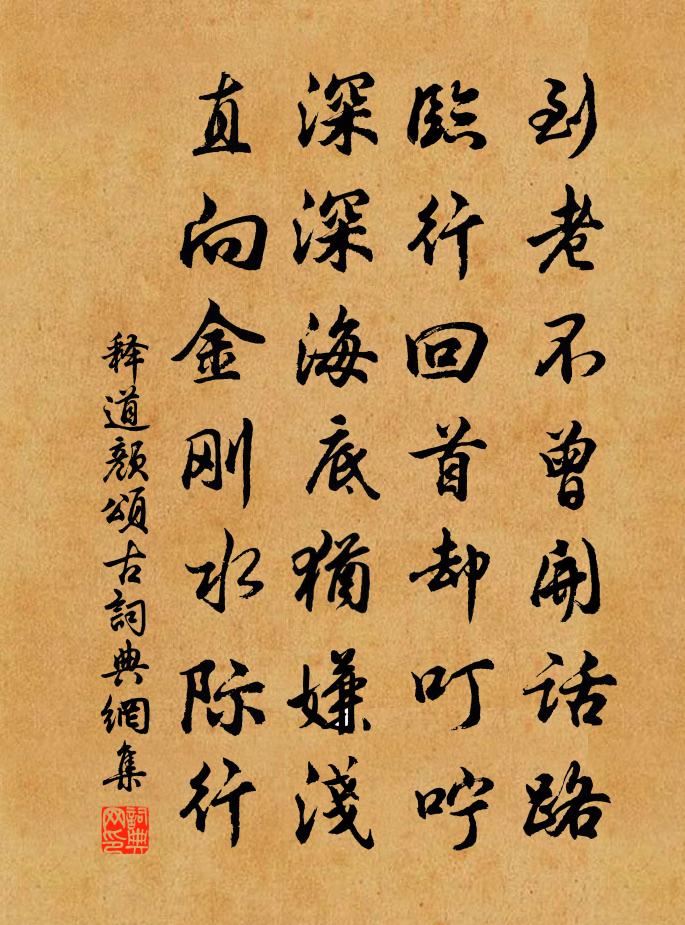 到老不曾開話路
臨行回首却叮咛
深深海底猶嫌淺
直向金刚水际行
释道颜頌古詞典網集
詞典网印